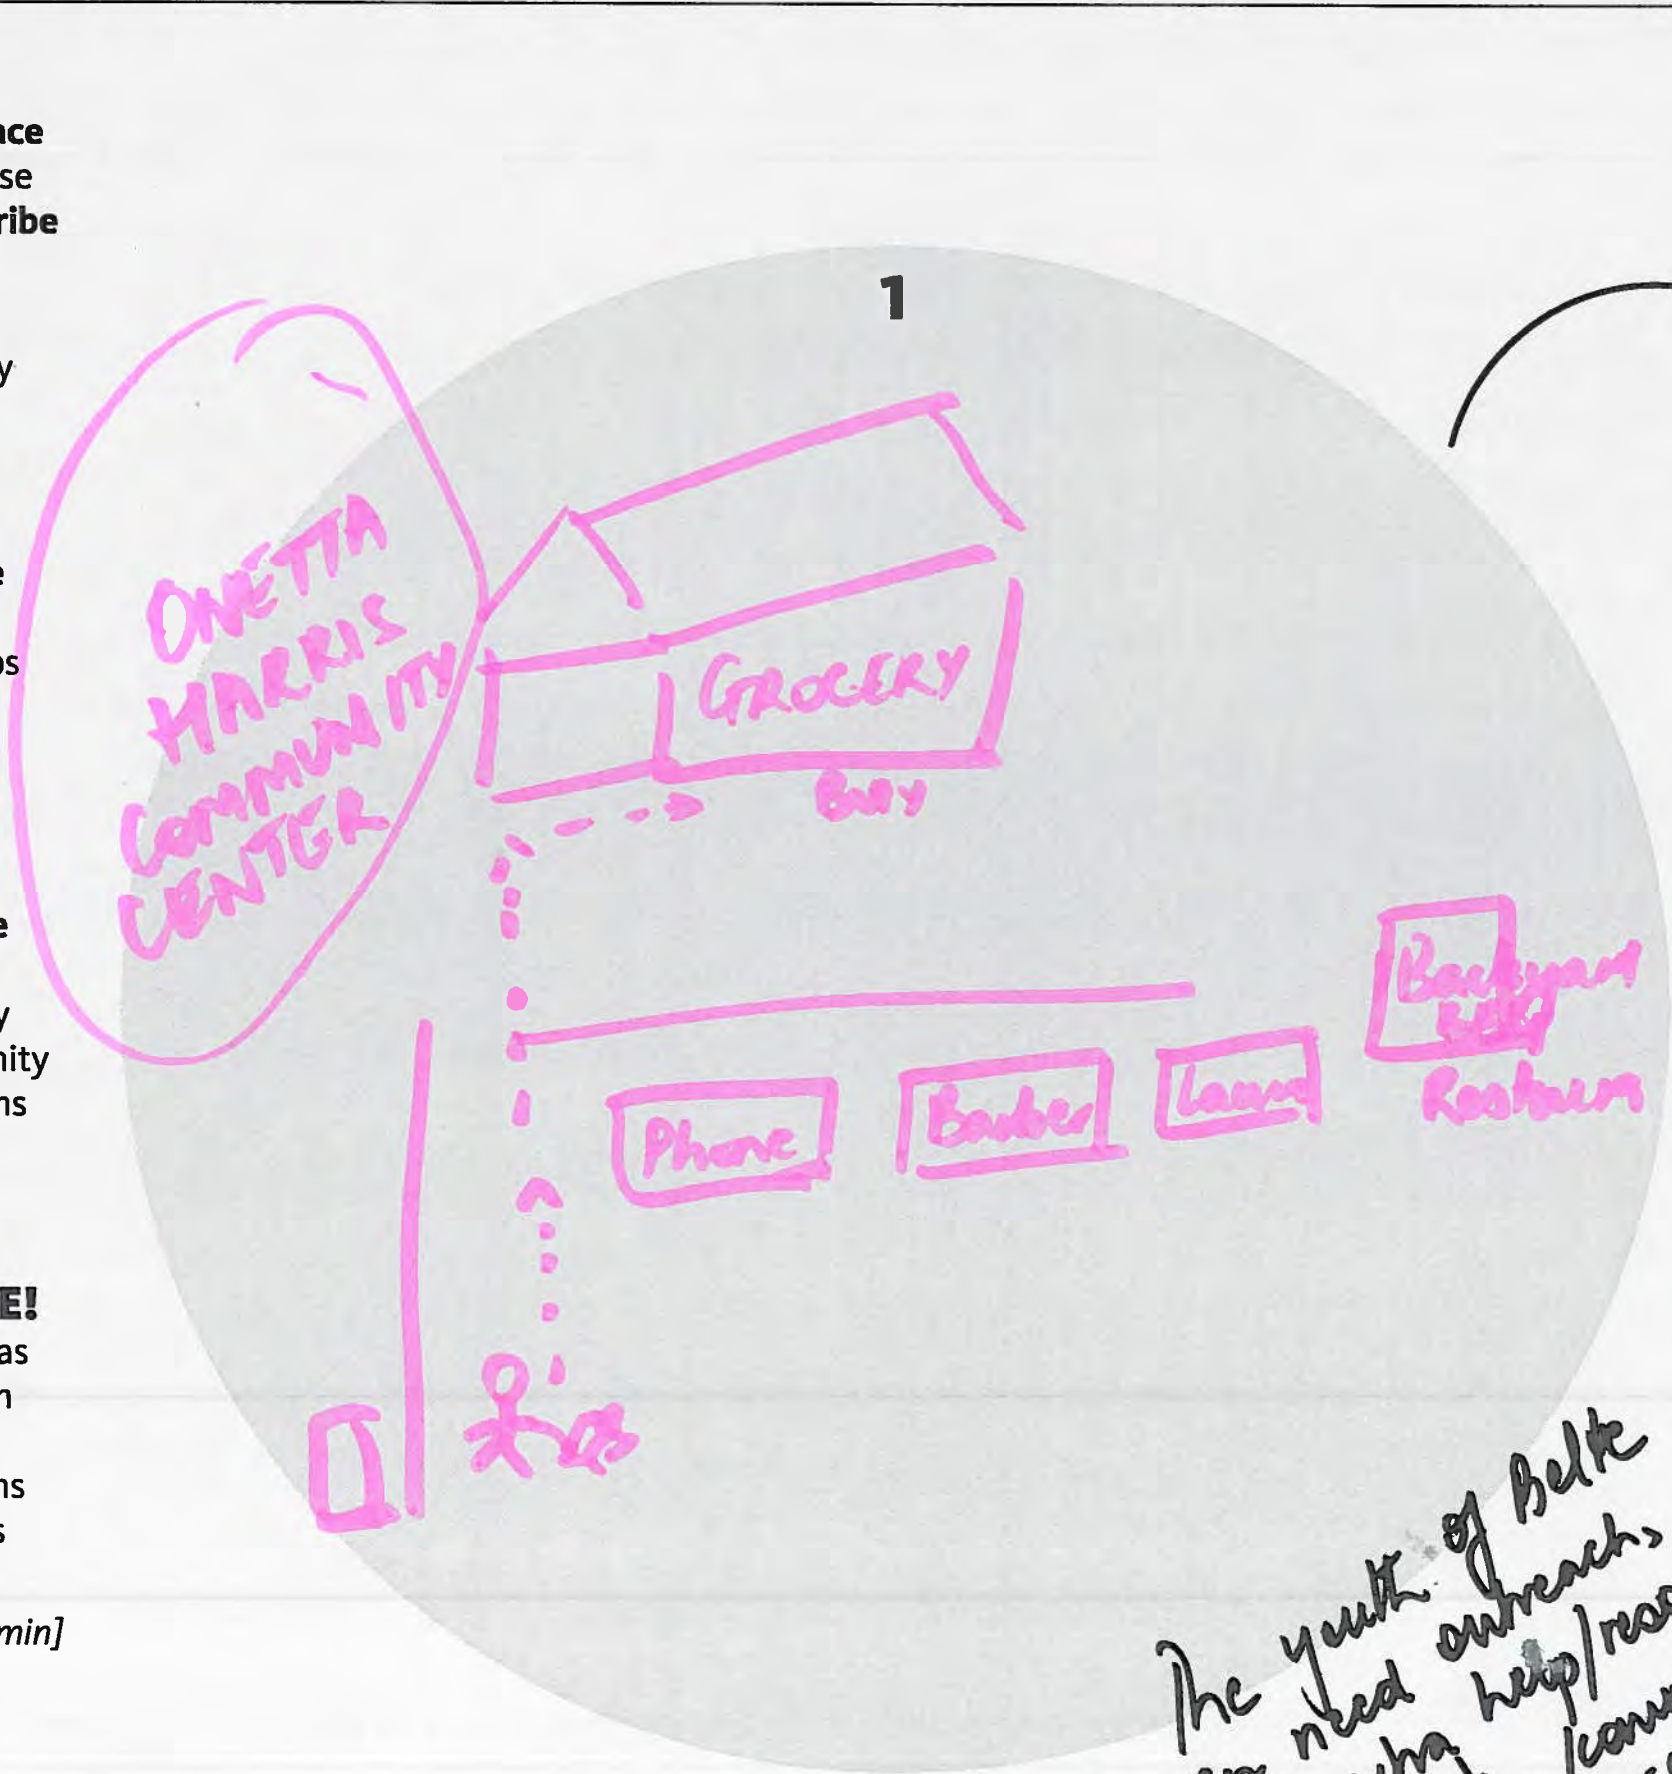 1
ace
se
ribe
y
e
ps
e
y
nity
ns
E!
as
n
ns
s
min]
ONETTA
HARRIS
COMMUNITY
CENTER
GROCERY
Buy
Phone
Barber
Backyard
BBQ
The youth of Belle
need outreach,
help/reso